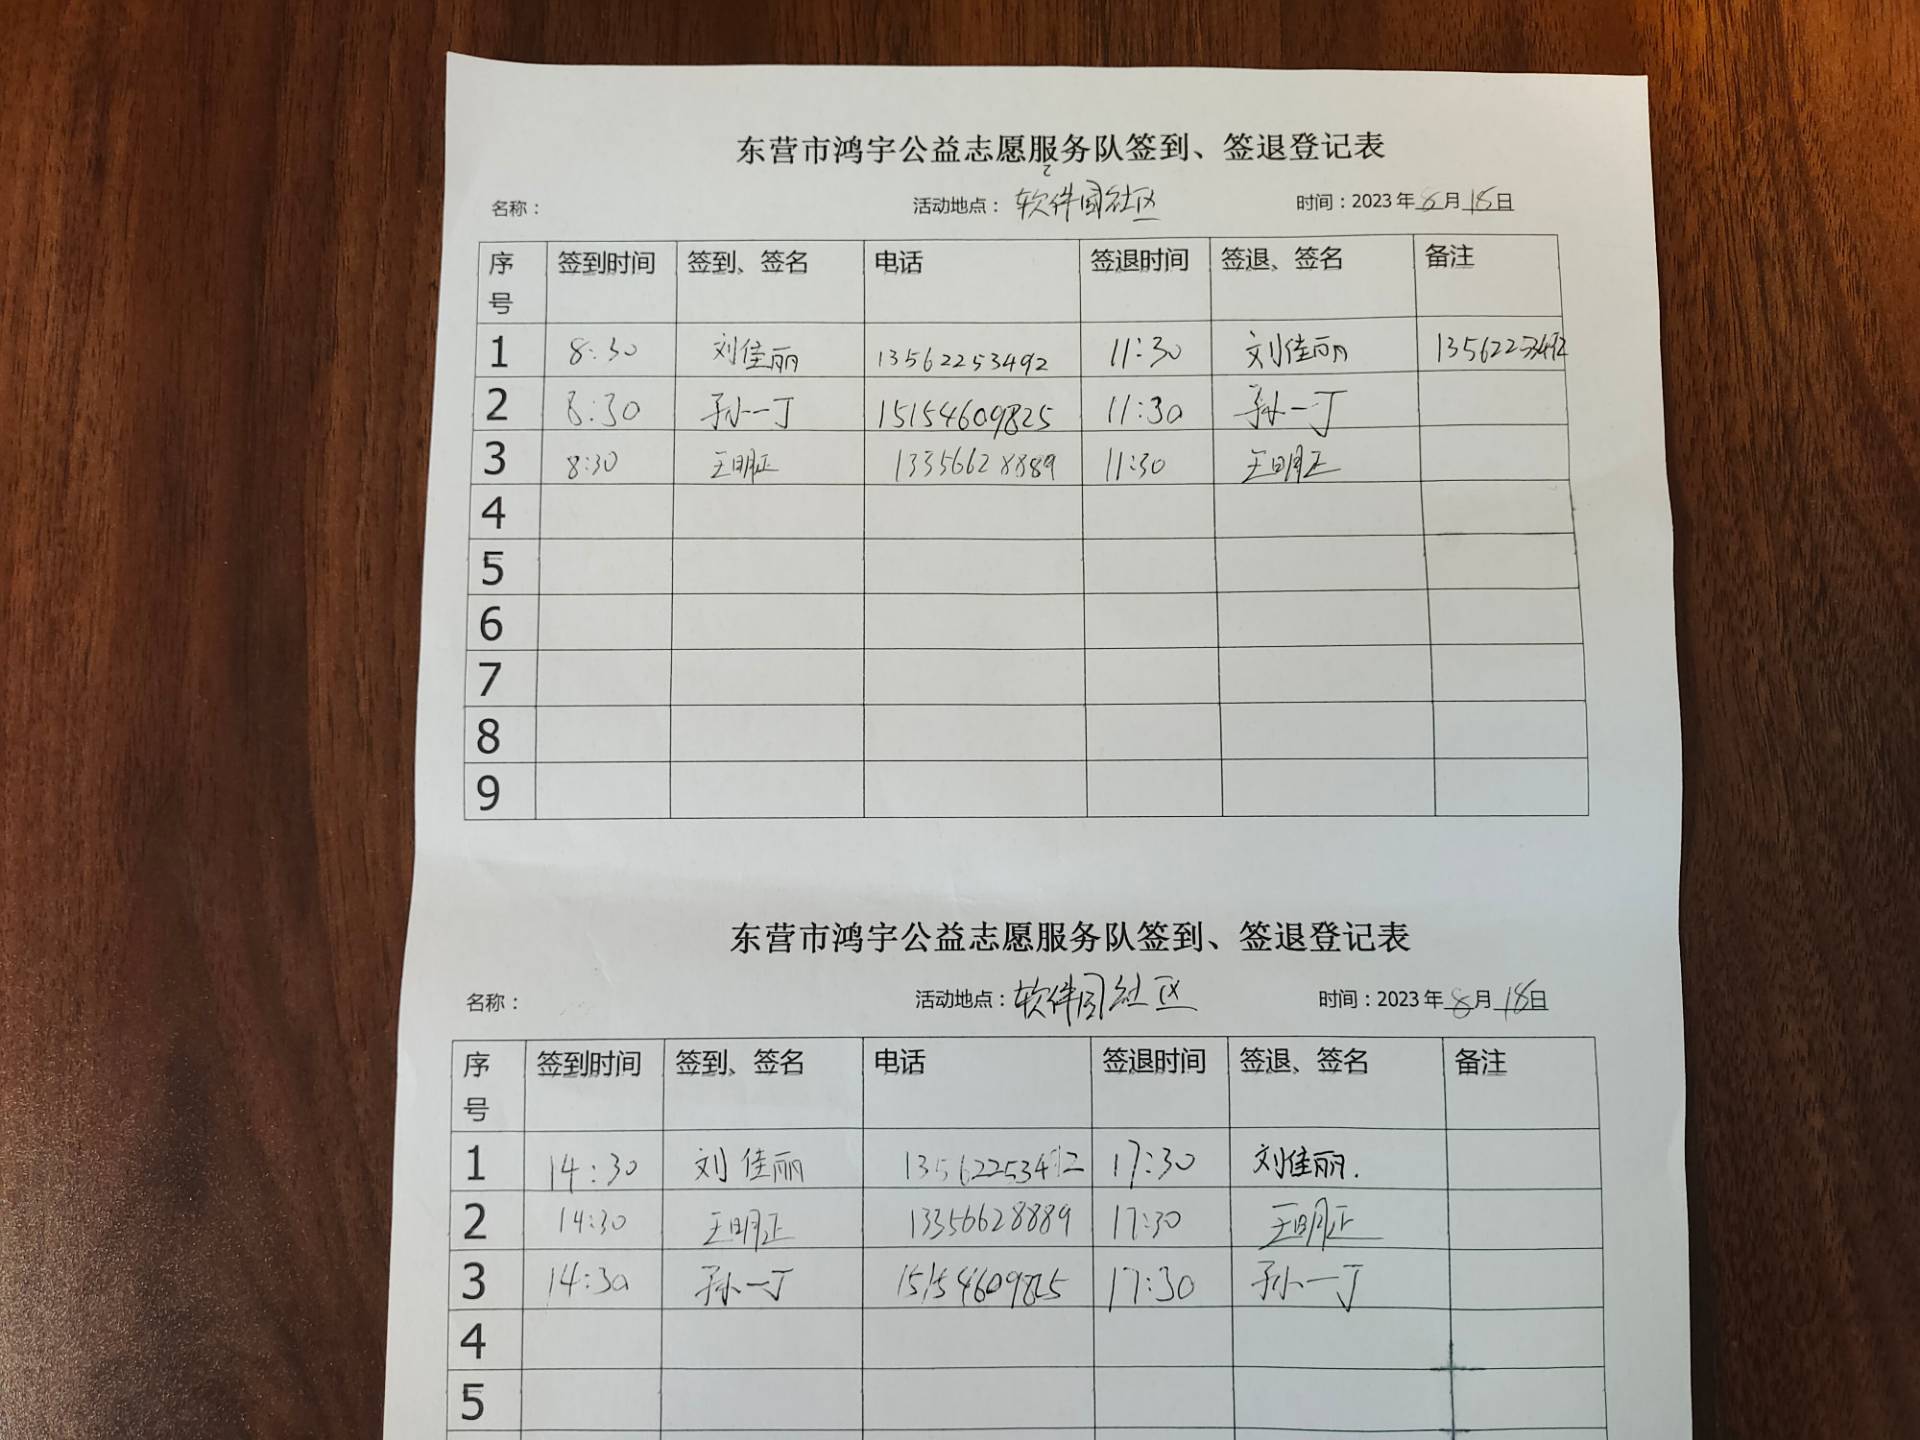 东营市鸿宇公益志愿服务队签到、签退登记表
名称： 活动地点：软件园社区 时间：2023年8月18日
序号 签到时间 签到、签名 电话 签退时间 签退、签名 备注
1 8:30 刘佳丽 13562253492 11:30 刘佳丽 13562253492
2 8:30 孙一丁 15154609825 11:30 孙一丁
3 8:30 王明正 13356628889 11:30 王明正
4
5
6
7
8
9
东营市鸿宇公益志愿服务队签到、签退登记表
名称： 活动地点：软件园社区 时间：2023年8月18日
序号 签到时间 签到、签名 电话 签退时间 签退、签名 备注
1 14:30 刘佳丽 13562253492 17:30 刘佳丽.
2 14:30 王明正 13356628889 17:30 王明正
3 14:30 孙一丁 15154609825 17:30 孙一丁
4
5